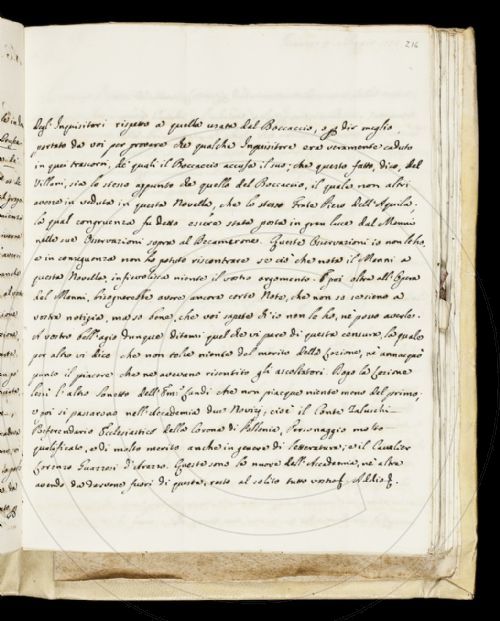 216
degl'Inquisitori rispetto a quella usata dal Boccaccio, o p dir meglio
portato da voi per provare che qualche Inquisitore era veramente caduto
in quei trascorsi, de' quali il Boccaccio accusa il suo; che questo fatto, dico, del
Villani, sia lo stesso appunto de quello del Boccaccio, il quale non altri
avesse in veduta in questa Novella, che lo stesso Frate Piero dell'Aquila.
la qual congruenza fu detto essere stata posta in gran luce dal Manni
nelle sue Osservazioni sopra al Decamerone. Queste Osservazioni io non l'ho,
e in conseguenza non ho potuto riscontrare se ciò che nota il Manni a
questa Novella, infievolisca niente il vostro argomento. E poi oltre all'Opera
del Manni, bisognerebbe avere ancora certe Note, che non so se sieno a
vostra notizia, ma so bene, che voi sapete ch'io non le ho, nè posso averle.
A vostro bell'agio dunque ditemi quel che vi pare di questa censura, la quale
per altro vi dico che non tolse niente del merito della Lezione, nè annacquò
punto il piacere che ne avevano risentito gli ascoltatori. Dopo la Lezione
lessi l'altro Sonetto dell' Landi che non piacque niente meno del primo;
e poi si passarono nell'Accademia due Novizj; cioè il Conte Zaluschi
Referendario Ecclesiastico della Corona di Pollonia, Personaggio molto
qualificato, e di molto merito anche in genere di letteratura; e il Cavalier
Lorenzo Guazzesi d'Arezzo. Queste sono le nuove dell'Accademia, nè altre
avendo da darvene fuori di queste, resto al solito tutto vostro. Addio.